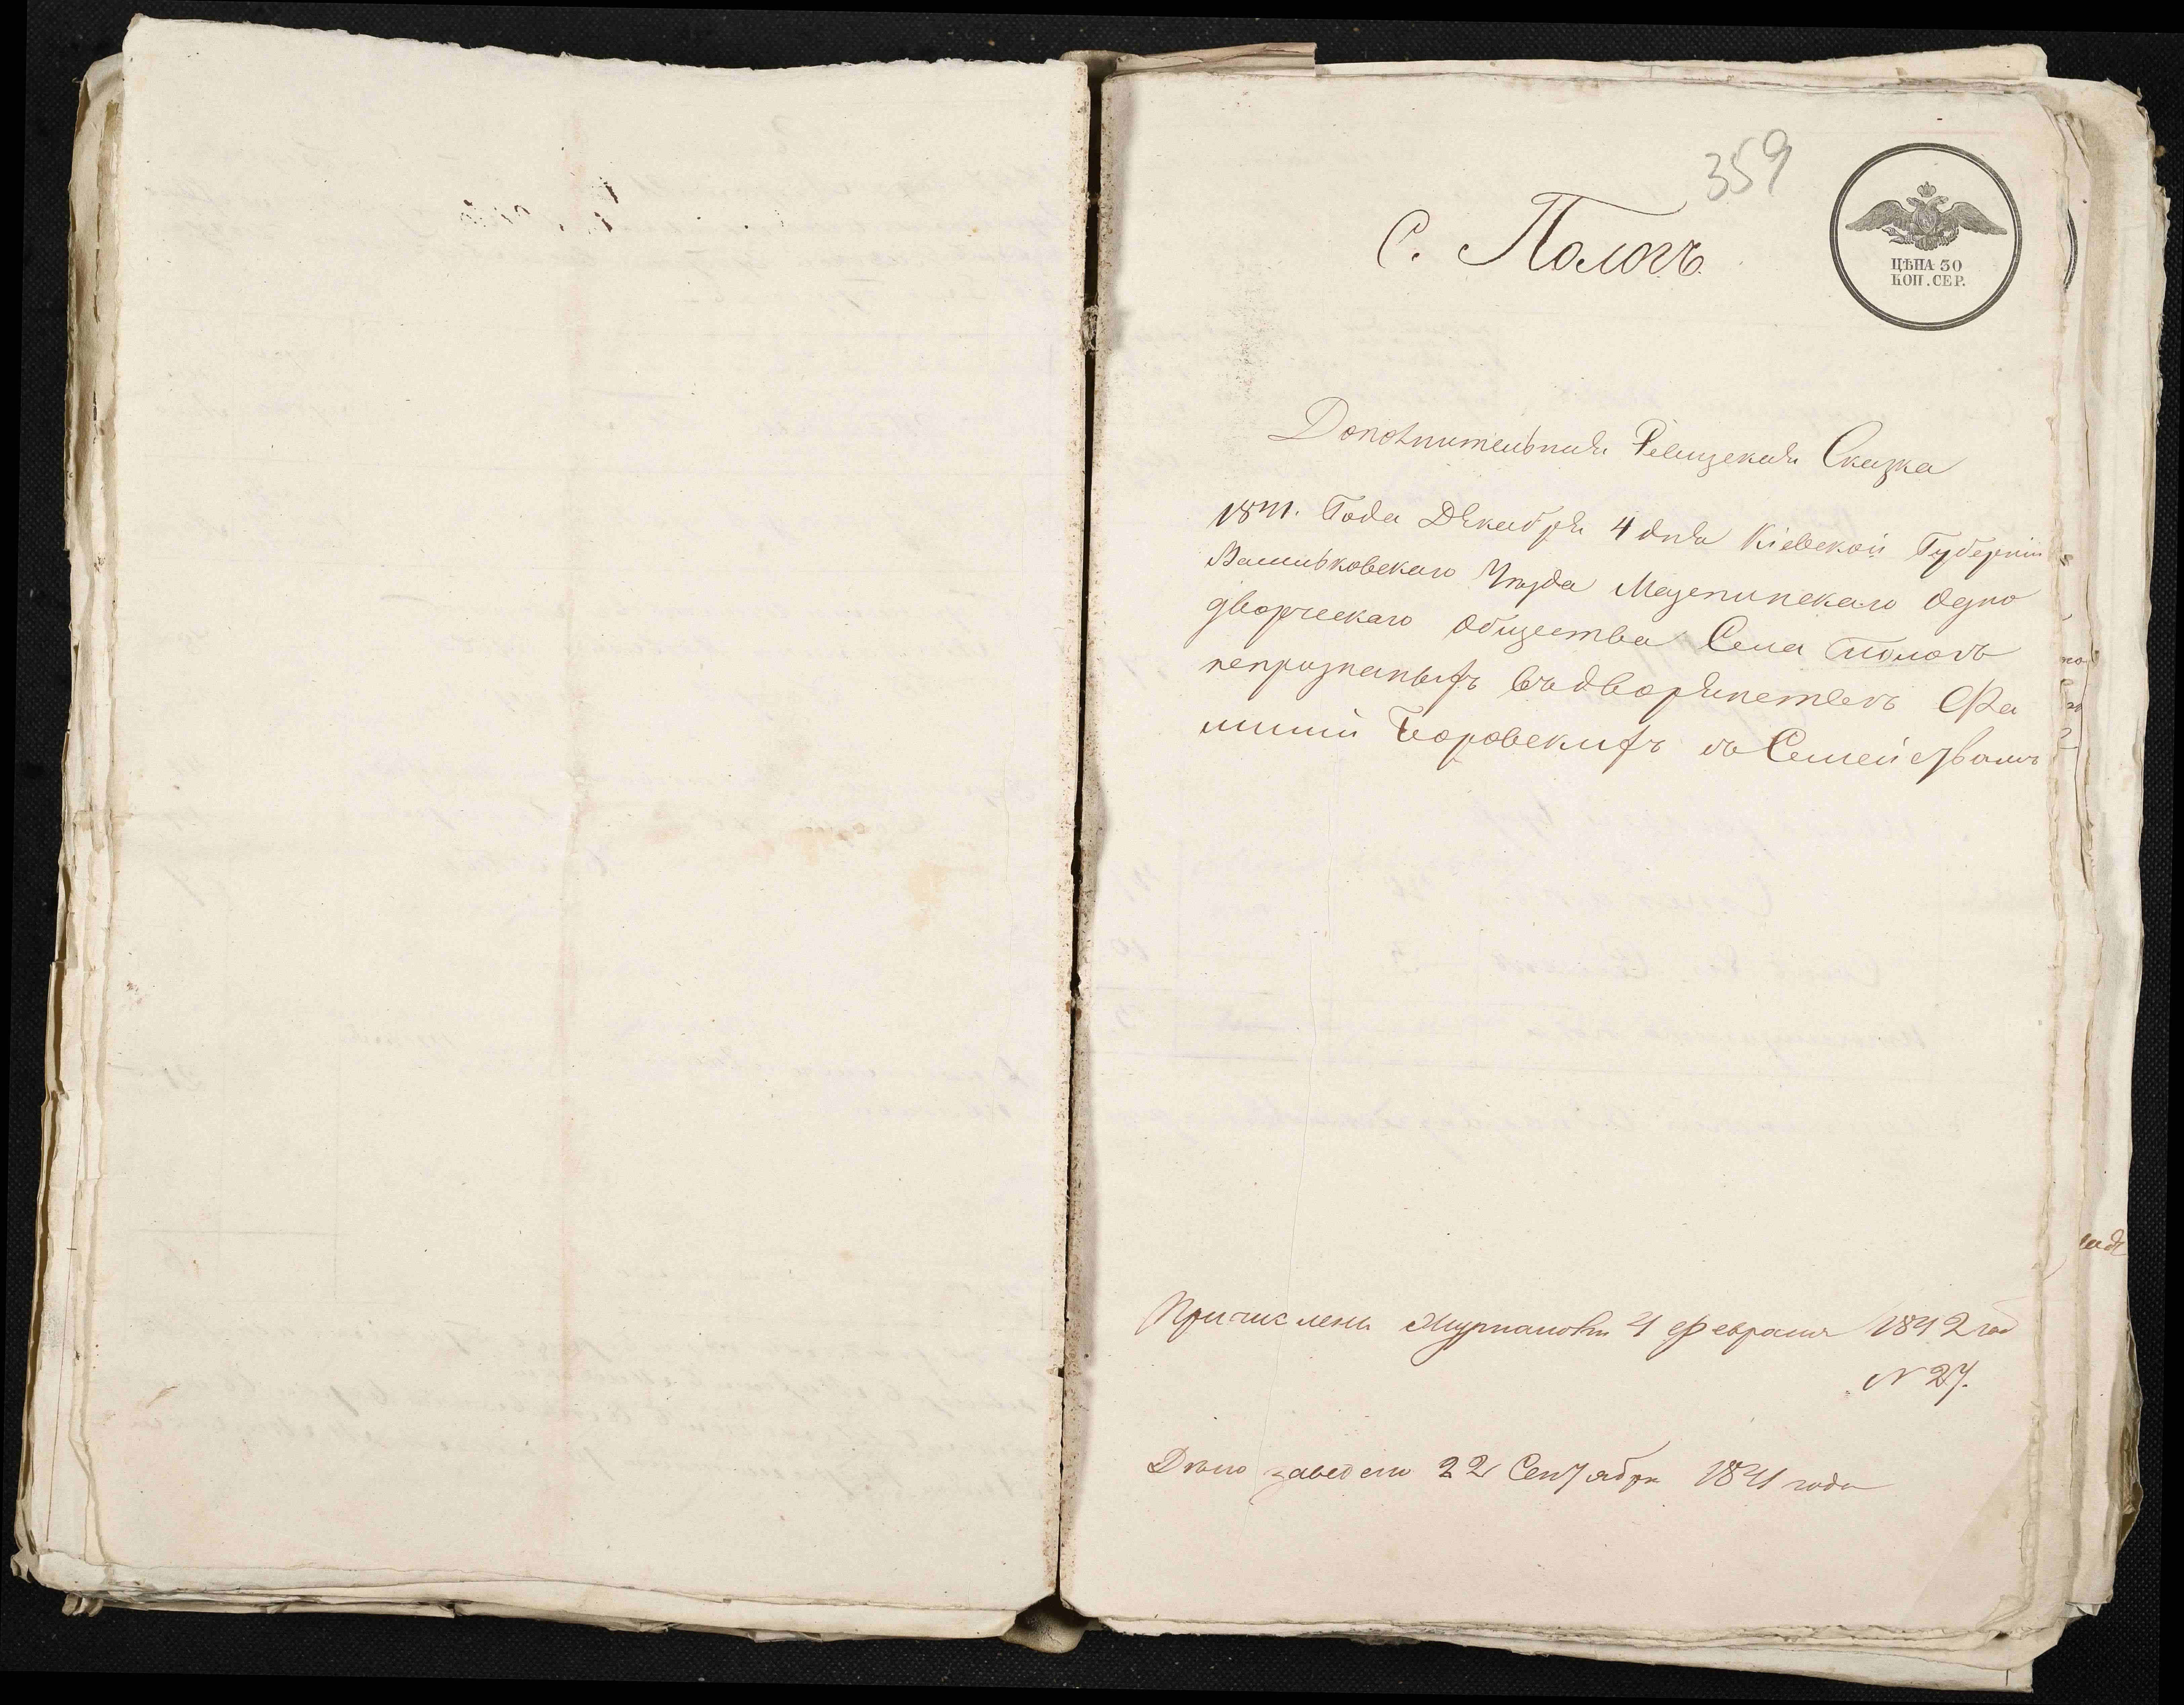 359
С. Пологъ.
ЦѢНА 30
КОП. СЕР.
Дополнительная Ревизская Сказка
1841. Года Декабря 4 дня Кіевской Губерніи
Васильковскаго Уѣзда Мазепинскаго Одно
дворческаго Общества Села Пологъ
непризнаныхъ въ дворянствѣ Фа
милий Боровскихъ съ Семействамъ
Причислены Журналомъ 4 февраля 1842 год
N 27.
Дѣло заведено 22 Сентября 1841 года